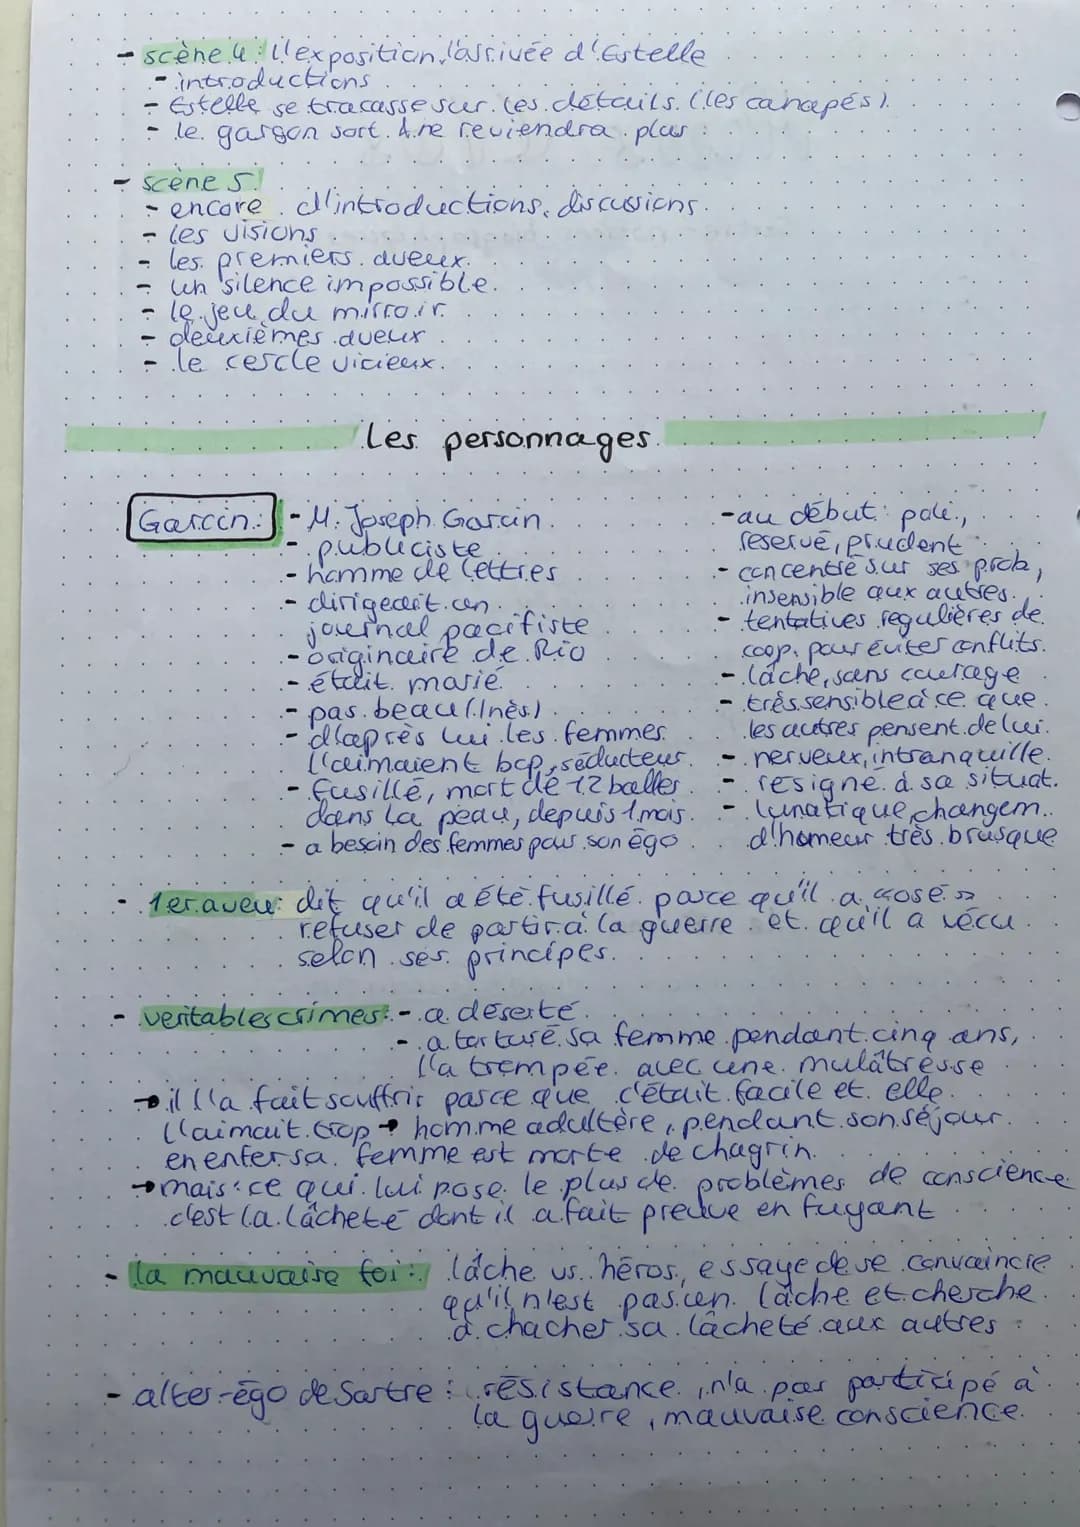 - scène 4 : l'exposition, l'arrivée d'Estelle
- introductions
- Estelle se tracasse sur les détails (les canapés)
- le garçon sort & ne reviendra plus
- scène 5:
- encore d'introductions, discussions
- les visions
- les premiers aveux
- un silence impossible
- le jeu du mirroir
- deuxièmes aveux
- le cercle vicieux
Les personnages
Garcin:
- M. Joseph Garcin
- publiciste
- homme de lettres
- dirigeait un
journal pacifiste
- originaire de Rio
- était marié
- pas beau (Inès)
- d'après lui les femmes
l'aimaient bcp, séducteur
- fusillé, mort de 12 balles
dans la peau, depuis 1 mois
- a besoin des femmes pour son égo
- au début: poli,
reservé, prudent
- concentré sur ses prob,
insensible aux autres
- tentatives regulières de
coop. pour éviter conflits.
- lâche, sans courage
- très sensible à ce que
les autres pensent de lui
- nerveux, intranquille
- resigné à sa situat.
- lunatique, changem.
d'homeur très brusque
- 1er aveu: dit qu'il a été fusillé parce qu'il a «osé»
refuser de partir à la guerre et qu'il a vécu
selon ses principes.
- veritables crimes: - a déserté
- a torturé sa femme pendant cinq ans,
l'a trempée avec une mulâtresse
→ il l'a fait souffrir parce que c'était facile et elle
l'aimait trop → homme adultère, pendant son séjour
en enfer sa femme est morte de chagrin
→ mais: ce qui lui pose le plus de problèmes de conscience
c'est la lâcheté dont il a fait preuve en fuyant
- la mauvaise foi: lâche vs. héros, essaye de se convaincre
qu'il n'est pas un lâche et cherche
à chacher sa lâcheté aux autres
- alter-égo de Sartre: résistance, n'a pas participé à
la guerre, mauvaise conscience